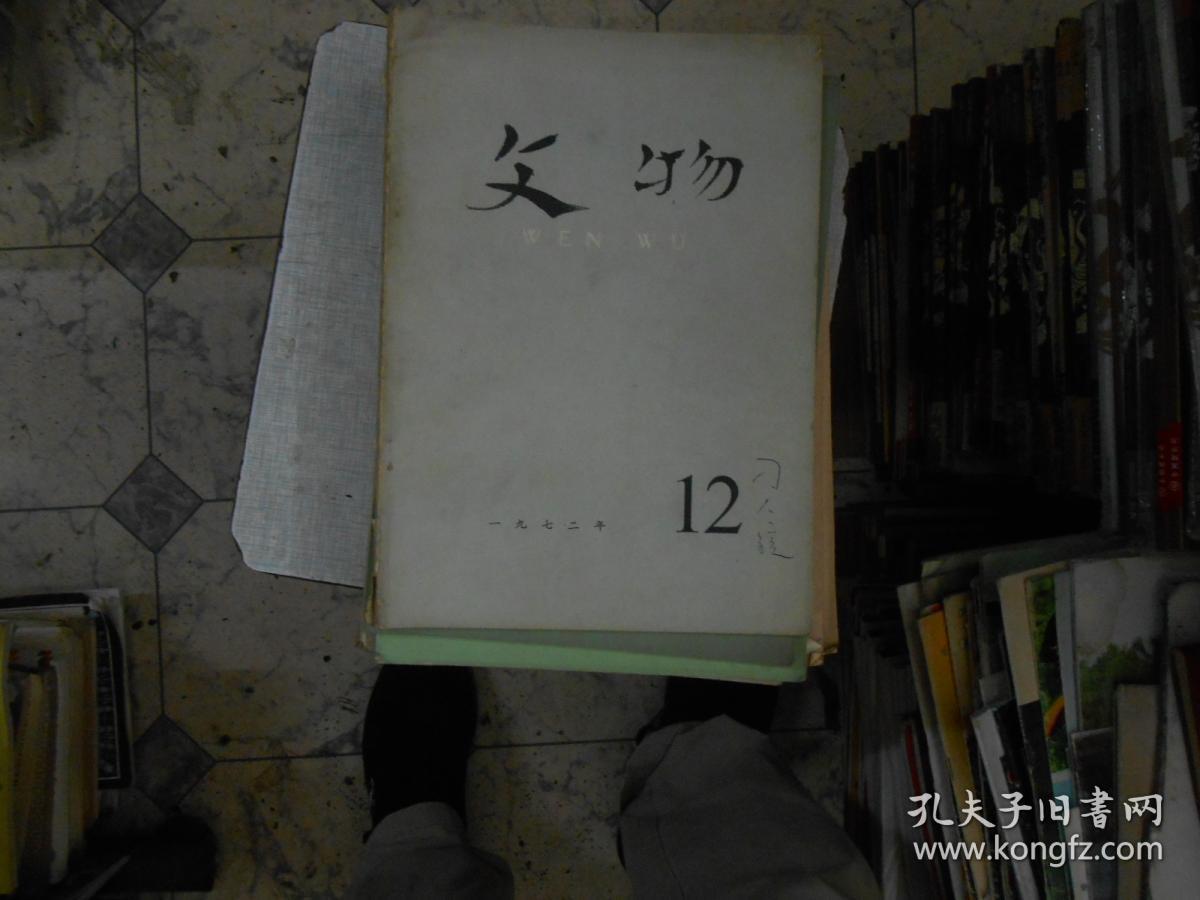 文物
WEN WU
一九七二年
12
孔夫子旧書网
www.kongfz.com